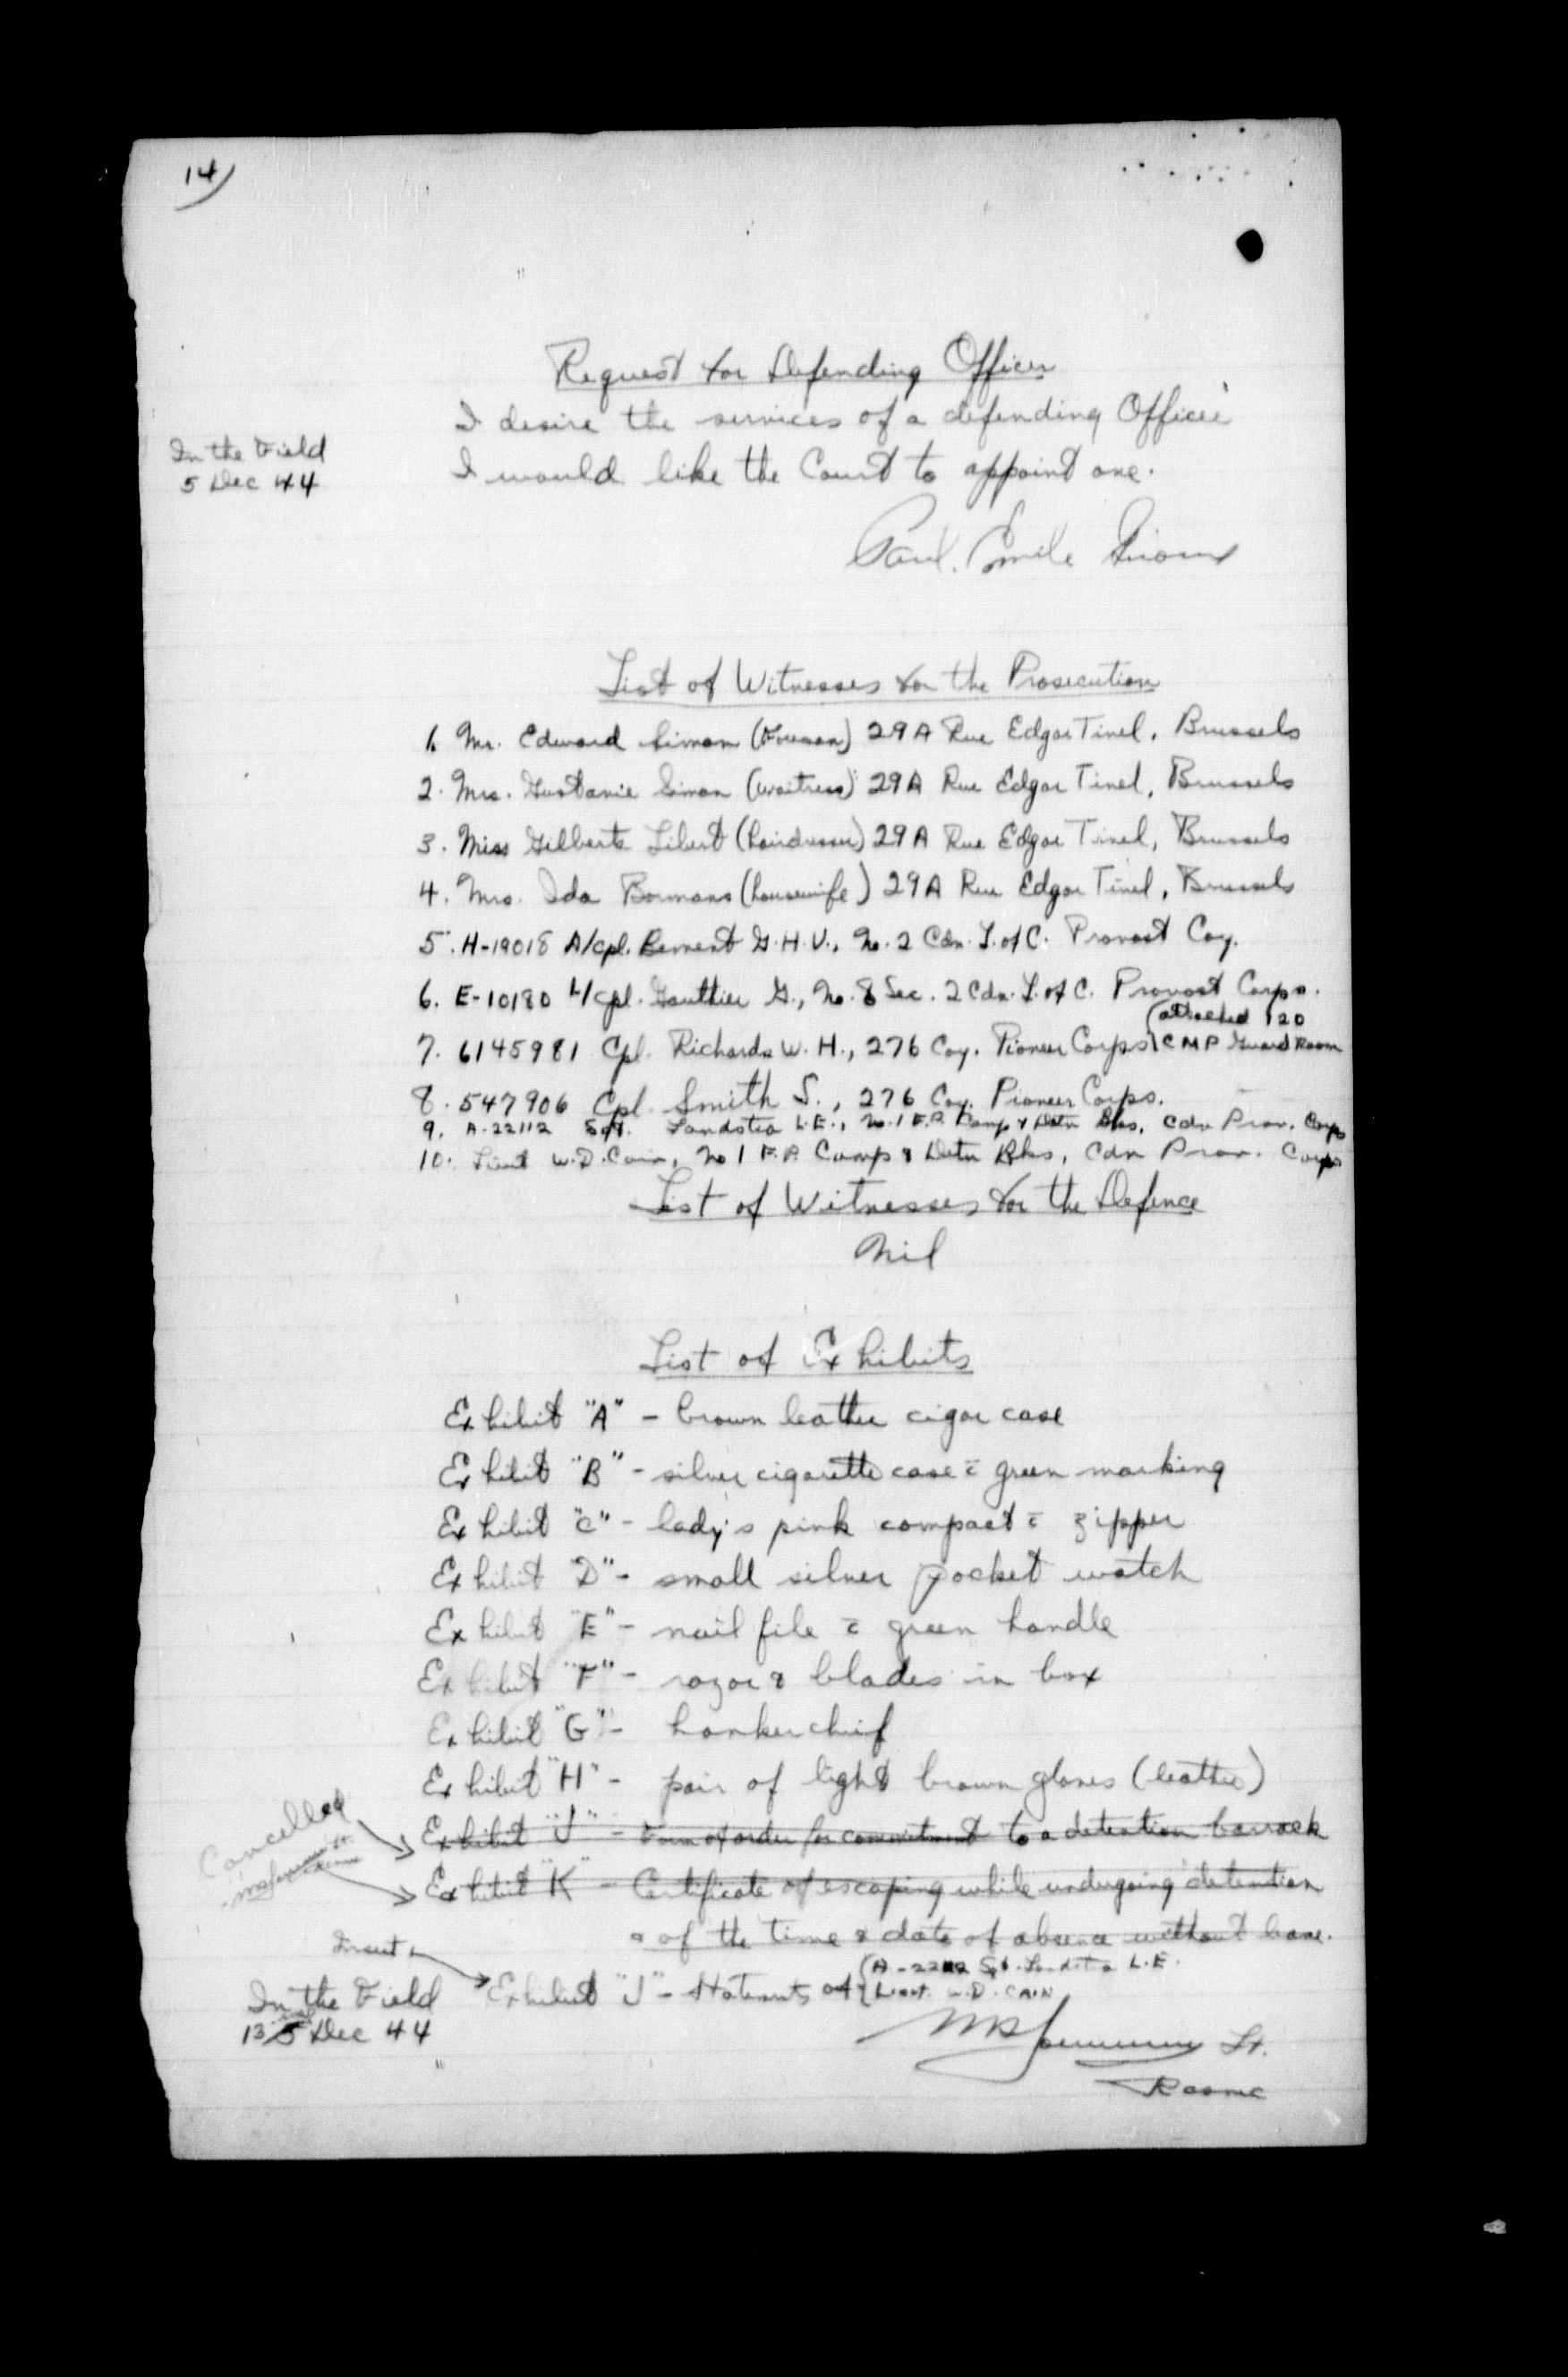 14)
Request for Defending Officer
I desire the services of a defending Officer
In the Field
5 Dec 44
I would like the Court to appoint one.
Paul. Emile
List of Witnesses for the Prosecution
1. Mr. Edward Simon (Foreman) 29A Rue Edgar Tinel, Brussels
2. Mrs. Gustanie Simon (waitress) 29A Rue Edgar Tinel, Brussels
3. Miss Gilberte Libert (hairdresser) 29A Rue Edgar Tinel, Brussels
4. Mrs. Ida Bormans (housewife) 29A Rue Edgar Tinel, Brussels
5. H-19018 A/Cpl. Bement G.H.V., No. 2 Cdn. L. of C. Provost Coy.
6. E-10180 L/Cpl. Gauthier G., No. 8 Sec. 2 Cdn. L. of C. Provost Corps.
7. 6145981 Cpl. Richards W. H., 276 Coy. Pioneer Corps (attached 120
CMP Guard Room
8. 547906 Cpl. Smith S., 276 Coy. Pioneer Corps.
9. A-22112 Sgt. Landstra L.E., No. 1 F.P. Camp & Detn Bks, Cdn Prov. Corps
10. Lieut W.D. Cain, No 1 F.P. Camp & Detn Bks, Cdn Prov. Corps
List of Witnesses for the Defence
Nil
List of Exhibits
Exhibit "A" - brown leather cigar case
Exhibit "B" - silver cigarette case c̄ green marking
Exhibit "C" - lady's pink compact c̄ zipper
Exhibit "D" - small silver pocket watch
Exhibit "E" - nail file c̄ green handle
Exhibit "F" - razor & blades in box
Exhibit "G" - hankerchief
Exhibit "H" - pair of light brown gloves (leather)
Cancelled
Exhibit "J" - Form of order for commitment to a detention barrack
Exhibit "K" - Certificate of escaping while undergoing detention
& of the time & date of absence without leave.
Insert
Exhibit "J" - Statements of {A-22112 Sgt. Landstra L.E.
Lieut. W.D. CAIN
In the Field
13 5 Dec 44
Lt.
RCAMC